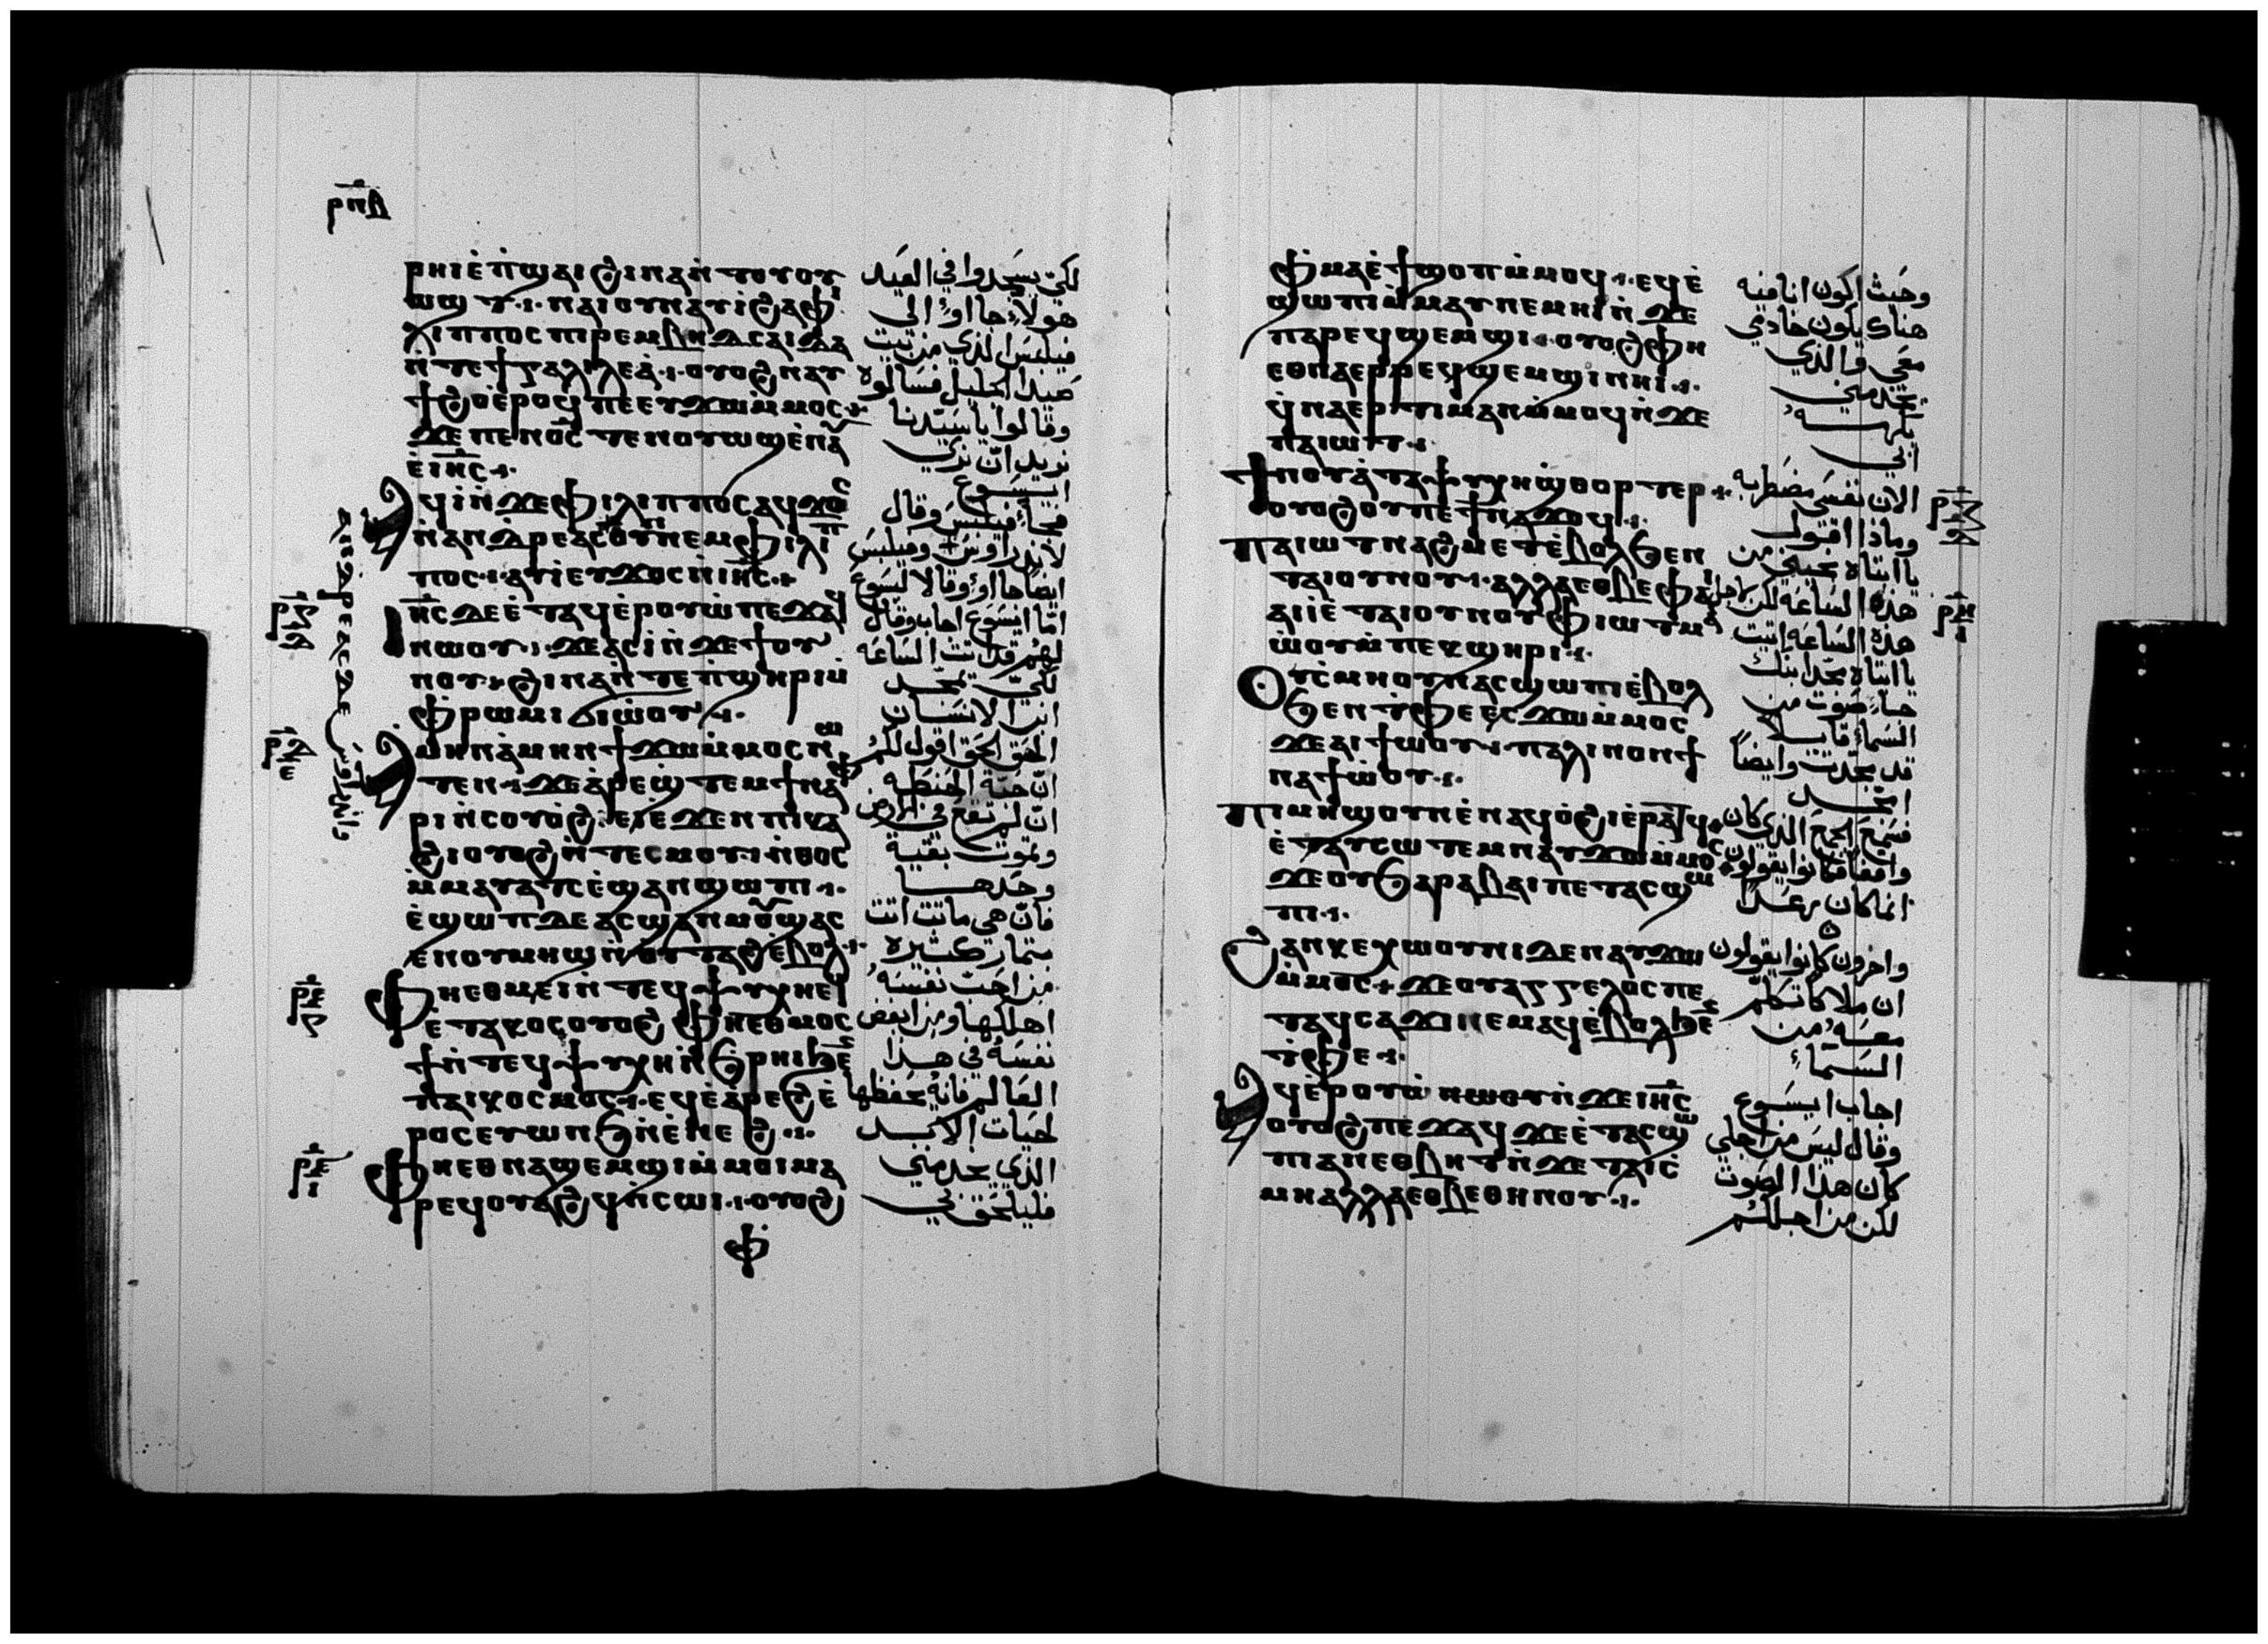 ⲣⲡⲇ
ⲣⲏⲓ ⲉ̀ⲡϣⲁⲓ ϩⲓⲛⲁ ⲛ̀ⲧⲟⲩⲟⲩ
ⲱϣⲧ ·ⲓ· ⲛⲁⲓ ⲟⲩⲛ ⲁⲩⲓ̀ ϩⲁ ⲫⲓ
ⲗⲓⲡⲡⲟⲥ ⲡⲓⲣⲉⲙⲃⲏⲇⲥⲁⲓⲇⲁ
ⲛ̀ⲧⲉ ϯⲅⲁⲗⲓⲗⲉⲁ̀ ·ⲓ· ⲟⲩⲟϩ ⲛⲁⲩ
ϯϩⲟ ⲉ̀ⲣⲟϥ ⲡⲉ ⲉⲩϫⲱ ⲙ̀ⲙⲟⲥ
ϫⲉ ⲡⲉⲛⲟ̅ⲥ̅ ⲧⲉⲛⲟⲩⲱϣ ⲉ̀ⲛⲁⲩ
ⲉ̀ⲓⲏ̅ⲥ̅ ·ⲓ·
ⲁϥⲓ̀ ⲛ̀ϫⲉ ⲫⲓⲗⲓⲡⲡⲟⲥ ⲁϥϫⲟⲥ
ⲛ̀ⲁⲛⲇⲣⲉⲁⲥ ⲟⲩⲛ ⲛⲉⲙ ⲫⲓⲗⲓⲡ
ⲡⲟⲥ ·ⲓ· ⲁⲩⲓ̀ ⲉⲩϫⲟⲥ ⲛⲓⲏ̅ⲥ̅ ·ⲓ·
ⲓⲏ̅ⲥ̅ ⲇⲉ ⲉ̀ⲧⲁϥⲉ̀ⲣⲟⲩⲱ̀ ⲡⲉϫⲁϥ
ⲛⲱⲟⲩ ·ⲓ· ϫⲉ ⲁⲥⲓ̀ ⲛ̀ϫⲉ ϯⲟⲩ
ⲛⲟⲩ ϩⲓⲛⲁ ⲛ̀ⲧⲉ ⲡ̀ϣⲏⲣⲓ ⲙ̀
ⲫⲣⲱⲙⲓ ϭⲓⲱ̀ⲟⲩ ·ⲓ·
ⲁⲙⲏⲛ ⲁ̀ⲙⲏⲛ ϯϫⲱ ⲙ̀ⲙⲟⲥ ⲛⲱ
ⲧⲉⲛ ·ⲓ· ϫⲉ ⲁⲣⲉϣ̀ⲧⲉⲙ ϯⲛⲁⲫ
ⲣⲓ ⲛ̀ⲥⲟⲩⲟ̀ ϩⲉⲓ ⲉ̀ϫⲉⲛ ⲡⲓⲕⲁ
ϩⲓ ⲟⲩⲟϩ ⲛ̀ⲧⲉⲥⲙⲟⲩ ·ⲓ· ⲛ̀ⲑⲟⲥ
ⲙ̀ⲙⲁⲩⲁⲧⲥ ⲉ̀ϣⲁⲥϣⲱⲡⲓ ·ⲓ·
ⲉ̀ϣⲱⲡ ⲇⲉ ⲁⲥϣⲁⲛⲙⲟⲩ ϣⲁⲥ
ⲉⲛ ⲟⲩⲙⲏϣ ⲛ̀ⲟⲩⲧⲁϩ ⲉ̀ⲃⲟⲗ ·ⲓ·
ⲫⲏ ⲉⲑⲙⲉⲓ ⲛ̀ⲧⲉϥⲯⲩⲭⲏ ⲉϥ
ⲉ̀ⲧⲁⲕⲟⲥ ⲟⲩⲟϩ ⲫⲏ ⲉⲑⲙⲟⲥ
ϯ ⲛ̀ⲧⲉϥⲯⲩⲭⲏ ⲛ̀ϧⲣⲏⲓ ϧⲉⲛ
ⲡⲁⲓⲕⲟⲥⲙⲟⲥ ·ⲓ· ⲉϥⲉ̀ⲁ̀ⲣⲉϩ ⲉ̀
ⲣⲟⲥ ⲉⲩⲱⲛϧ ⲛ̀ⲉ̀ⲛⲉϩ ·ⲓ·
ⲫⲏ ⲉⲑⲛⲁϣⲉⲙϣⲓ ⲙ̀ⲙⲟⲓ ⲙⲁ
ⲣⲉϥⲟⲩⲁϩϥ ⲛ̀ⲥⲱⲓ ·ⲓ· ⲟⲩⲟϩ
ⲫ
لكي يسجدوا في العيد
هولاء جاواْ الى
فيلبس الذي من بيت
صيدا الجليل فسالوه
وقالوا يا سيدنا
نريد ان نري
ايسوع
فجاء فيلبس وقال
لاندراوس وفيلبس
ايضا جااو وقالا ليسوع
اما ايسوع اجاب وقال
لهم قد اتت الساعه
لكي يتمجد
ابن الانسان
الحق الحق اقول لكم
ان حبة الحنطه
ان لم تقع في الارض
وتموت بقية
وحدها
فان هي ماتت اتت
بثمار كثيره
من احب نفسه
اهلكها ومن ابغض
نفسه في هذا
العالم فانه يحفظها
لحيات الابد
الذي يخدمني
فليلحق بي
ⲫⲙⲁ ⲉ̀ϯϣⲟⲡ ⲙ̀ⲙⲟϥ ·ⲓ· ⲉϥⲉ̀
ϣⲱⲡⲓ ⲙ̀ⲙⲁⲩ ⲛⲉⲙⲏⲓ ⲛ̀ϫⲉ
ⲡⲁⲣⲉϥϣⲉⲙϣⲓ ·ⲓ· ⲟⲩⲟϩ ⲫⲏ
ⲉⲑⲛⲁⲉⲣⲣⲉϥϣⲉⲙϣⲓ ⲛⲏⲓ ·ⲓ·
ϥ̀ⲛⲁⲉⲣⲧⲓⲙⲁⲛ ⲙ̀ⲙⲟϥ ⲛ̀ϫⲉ
ⲡⲁⲓⲱⲧ ·ⲓ·
ϯⲛⲟⲩ ⲁ̀ ⲧⲁⲯⲩⲭⲏ ϣ̀ⲑⲟⲣⲧⲉⲣ ·ⲓ·
ⲟⲩⲟϩ ⲟⲩ ⲡⲉ ϯⲛⲁϫⲟϥ ·ⲓ·
ⲡⲁⲓⲱⲧ ⲛⲁϩⲙⲉⲧ ⲉ̀ⲃⲟⲗ ϧⲉⲛ
ⲧⲁⲓⲟⲩⲛⲟⲩ ·ⲓ· ⲁⲗⲗⲁ ⲉⲑⲃⲉ ⲫⲁⲓ
ⲁⲓⲓ̀ ⲉ̀ⲧⲁⲓⲟⲩⲛⲟⲩ ⲫⲓⲱⲧ ⲙⲁ
ⲱ̀ⲟⲩ ⲙ̀ⲡⲉⲕϣⲏⲣⲓ ·ⲓ·
ⲟⲩⲥ̀ⲙⲏ ⲟⲩⲛ ⲁⲥϣⲱⲡⲓ ⲉ̀ⲃⲟⲗ
ϧⲉⲛ ⲧ̀ⲫⲉ ⲉⲥϫⲱ ⲙ̀ⲙⲟⲥ
ϫⲉ ⲁⲓϯⲱⲟⲩ ·ⲓ· ⲡⲁⲗⲓⲛ ⲟⲛ ϯ
ⲛⲁϯⲱ̀ⲟⲩ ·ⲓ·
ⲡⲓⲙⲏϣ ⲟⲩⲛ ⲉ̀ⲛⲁϥⲟ̀ϩⲓ ⲉ̀ⲣⲁⲧϥ
ⲉ̀ⲧⲁⲩⲥⲱⲧⲉⲙ ⲛⲁⲩϫⲱ ⲙ̀ⲙⲟⲥ
ϫⲉ ⲟⲩϧⲁⲣⲁⲃⲁⲓ ⲡⲉⲧⲁⲥϣⲱ
ⲡⲓ ·ⲓ·
ϩⲁⲛⲕⲉⲭⲱⲟⲩⲛⲓ ⲇⲉ ⲛⲁⲩϫⲱ
ⲙ̀ⲙⲟⲥ ϫⲉ ⲟⲩⲁⲅⲅⲉⲗⲟⲥ ⲡⲉ
ⲧⲁϥⲥⲁϫⲓ ⲛⲉⲙⲁϥ ⲉ̀ⲃⲟⲗ ϧⲉⲛ
ⲧ̀ⲫⲉ ·ⲓ·
ⲁϥⲉ̀ⲣⲟⲩⲱ̀ ⲛⲱⲟⲩ ⲛ̀ϫⲉ ⲓⲏ̅ⲥ̅
ⲟⲩⲟϩ ⲡⲉϫⲁϥ ϫⲉ ⲉ̀ⲧⲁⲥϣⲱ
ⲡⲓ ⲁⲛ ⲉⲑⲃⲏⲧ ⲛ̀ϫⲉ ⲧⲁⲓⲥ̀
ⲙⲏ ⲁⲗⲗⲁ ⲉⲑⲃⲉ ⲑⲏⲛⲟⲩ ·ⲓ·
وحيث اكون انا فيه
هناك يكون خادمي
معي والذي
يخدمني
يكرمه
ابي
الان نفسي مضطربه
وماذا اقول
يا ابتاه نجيني من
هذه الساعه لكن لاجل
هذه الساعه اتيت
يا ابتاه مجد ابنك
جاء صوت من
السماء قايلا
قد مجدت وايضا
امجد
فسمع الجمع الذي كان
واقفا فكانوا يقولون
انما كان رعدا
واخرون كانوا يقولون
ان ملاكا تكلم
معه من
السماء
اجاب ايسوع
وقال ليس من اجلي
كان هذا الصوت
لكن من اجلكم